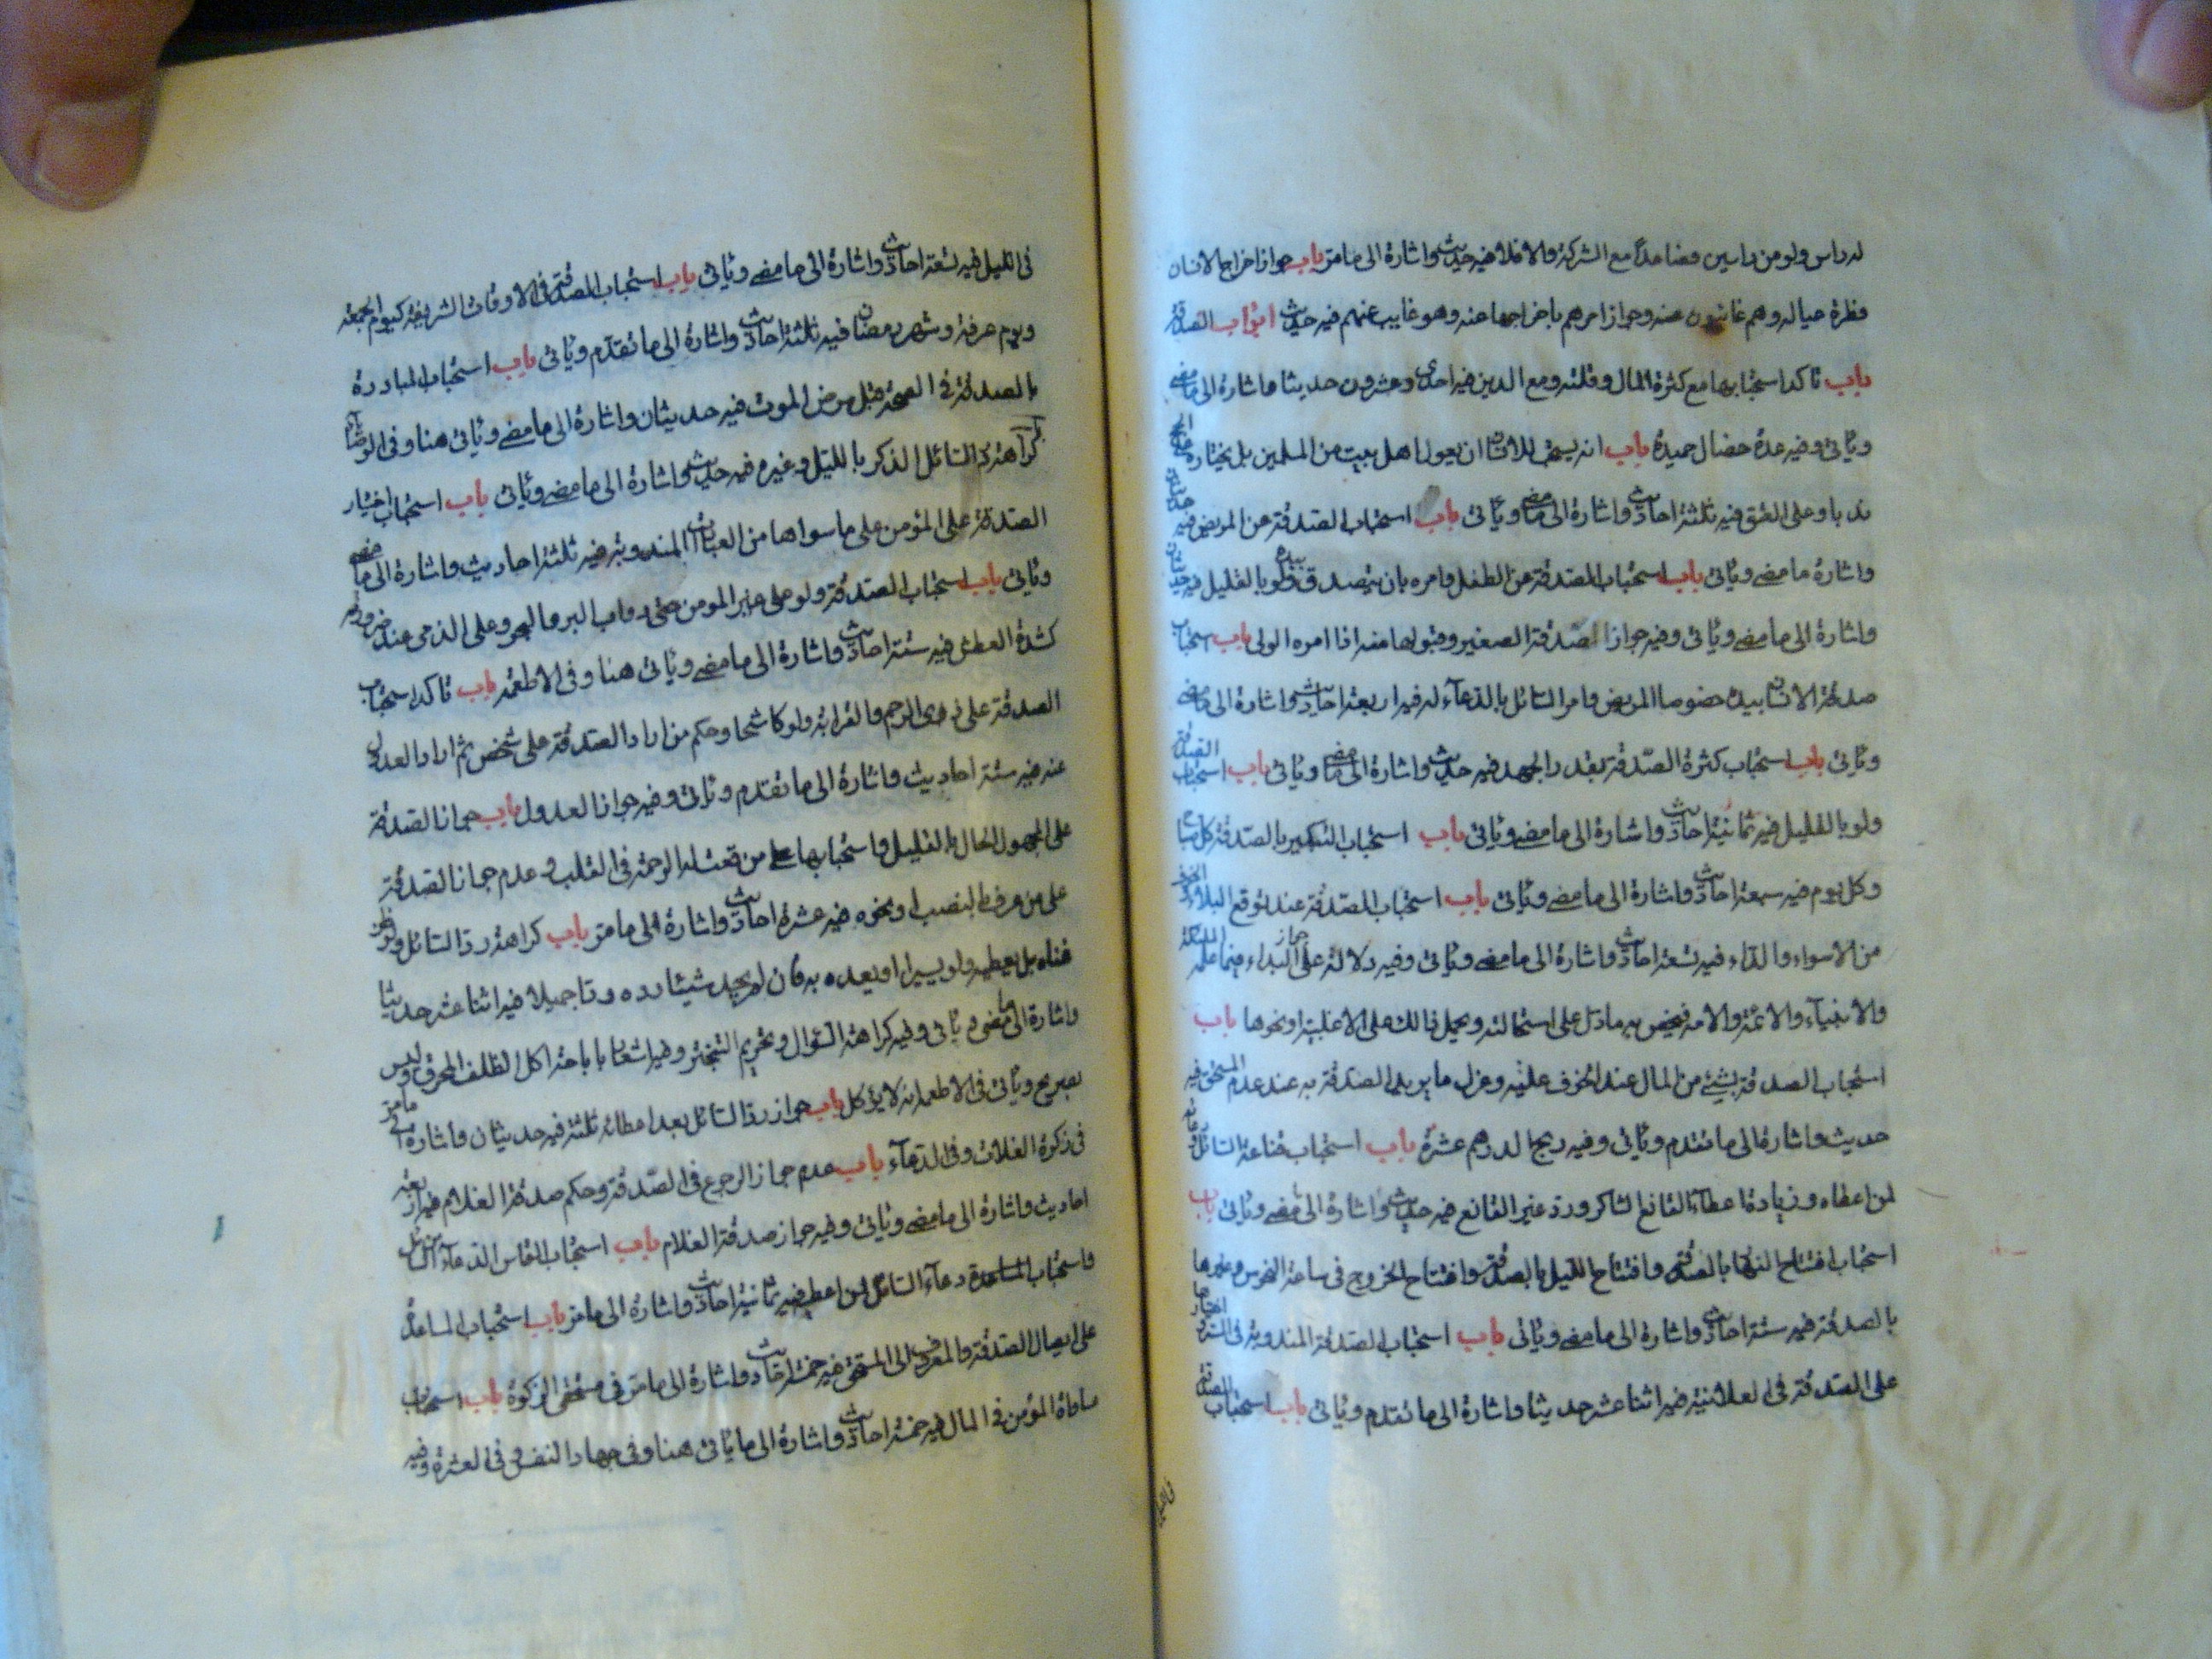 له راس ولو من راسين فصاعدا مع الشركة والا فلا فيه حديث واشارة الى ما مر باب جواز اخراج الانسان
فطرة عياله وهم غائبون عنه وجواز امرهم باخراجها عنه وهو غايب عنهم فيه حديث ابواب الصدقة
باب تاكد استحبابها مع كثرة المال وقلته ومع الدين فيه احدى وعشرون حديثا واشارة الى ما مضى
وياتى وفيه عدة خصال حميدة باب انه يستحب للانسان ان يعول اهل بيت من المسلمين بل يختاره على الحج
ندبا وعلى العتق فيه ثلثة احاديث واشارة الى ما مضى وياتى باب استحباب الصدقة عن المريض فيه حديث
واشارة ما مضى وياتى باب استحباب الصدقة عن الطفل وامره بان يتصدق بيده ولو بالقليل فيه حديثان
واشارة الى ما مضى وياتى وفيه جواز الصدقة الصغير وقبولها منه اذا امره الولى باب استحباب
صدقة الانسان بيده خصوصا المريض وامر السائل بالدعاء له فيه اربعة احاديث واشارة الى ما مضى
وياتى باب استحباب كثرة الصدقة بقدر الجهد فيه حديث واشارة الى ما مضى وياتى باب استحباب الصدقة
ولو بالقليل فيه ثمانية احاديث واشارة الى ما مضى وياتى باب استحباب التبكير بالصدقة كل صباح
وكل يوم فيه سبعة احاديث واشارة الى ما مضى وياتى باب استحباب الصدقة عند توقع البلاء والخوف
من الاسواء والداء فيه تسعة احاديث واشارة الى ما مضى وياتى وفيه دلالة على جواز البداء فيما علمه الملائكة
والانبياء والائمة والامه فيخص به ما دل على استحالته ويحمل ذالك على الاغلبية او نحوها باب
استحباب الصدقة بشيء من المال عند الخوف عليه وعزل ما يريد الصدقة به عند عدم المستحق فيه
حديث واشارة الى ما تقدم وياتى وفيه ربح الدرهم عشرة باب استحباب قناعة السائل ودعائه
لمن اعطاه وزيادة اعطاء القانع الشاكر ورد غير القانع فيه حديث واشارة الى ما مضى وياتى باب
استحباب افتتاح النهار بالصدقة وافتتاح الليل بالصدقة وافتتاح الخروج فى ساعة النحوس وغيرها
بالصدقة فيه ستة احاديث واشارة الى ما مضى وياتى باب استحباب الصدقة المندوبة فى السر واختيارها
على الصدقة فى العلانية فيه اثنا عشر حديثا واشارة الى ما تقدم وياتى باب استحباب الصدقة
فى الليل
فى الليل فيه تسعة احاديث واشارة الى ما مضى وياتى باب استحباب الصدقة فى الاوقات الشريفة كيوم الجمعة
ويوم عرفة وشهر رمضان فيه ثلثة احاديث واشارة الى ما تقدم وياتى باب استحباب المبادرة
بالصدقة فى الصحة قبل مرض الموت فيه حديثان واشارة الى ما مضى وياتى هنا وفى الوصايا باب
كراهة رد السائل الذكر بالليل وغيره فيه حديث واشارة الى ما مضى وياتى باب استحباب اختيار
الصدقة على المؤمن على ما سواها من العبادات المندوبة فيه ثلثة احاديث واشارة الى ما مضى
وياتى باب استحباب الصدقة ولو على غير المومن حتى دواب البر والبحر وعلى الذمى عند ضرورته
كشدة العطش فيه ستة احاديث واشارة الى ما مضى وياتى هنا وفى الاطعمة باب تاكد استحباب
الصدقة على ذى الرحم والقرابة ولو كاشحا وحكم من اراد الصدقة على شخص ثم اراد العدول
عنه فيه ستة احاديث واشارة الى ما تقدم وياتى وفيه جواز العدول باب جواز الصدقة
على المجهول الحال بالقليل واستحبابها على من وقعت له الرحمة فى القلب وعدم جواز الصدقة
على من عرف بالنصب او نحوه فيه عشرة احاديث واشارة الى ما مر باب كراهة رد السائل ولو ظن
غناه بل يعطيه ولو يسيرا او يعده به فان لم يجد شيئا رده ردا جميلا فيه اثنا عشر حديثا
واشارة الى ما مضى وياتى وفيه كراهة السؤال وتحريم التبختر وفيه اشعار باباحة اكل الظلف المحرق وليس
بصريح وياتى فى الاطعمة انه لا يؤكل باب جواز رد السائل بعد اعطائه ثلثة فيه حديثان واشارة الى ما مر
فى زكوة الغلات وفى الدعاء باب عدم جواز الرجوع فى الصدقة وحكم صدقة الغلام فيه اربعة
احاديث واشارة الى ما مضى وياتى وفيه جواز صدقة الغلام باب استحباب التماس الدعاء من السائل
واستحباب دعاء السائل لمن اعطاه فيه ثمانية احاديث واشارة الى ما مر باب استحباب المساعدة
على ايصال الصدقة والمعروف الى المستحق فيه خمسة احاديث واشارة الى ما مر فى مستحقى الزكوة باب استحباب
مواساة المؤمن فى المال فيه خمسة احاديث واشارة الى ما ياتى هنا وفى جهاد النفس وفى العشرة وفيه